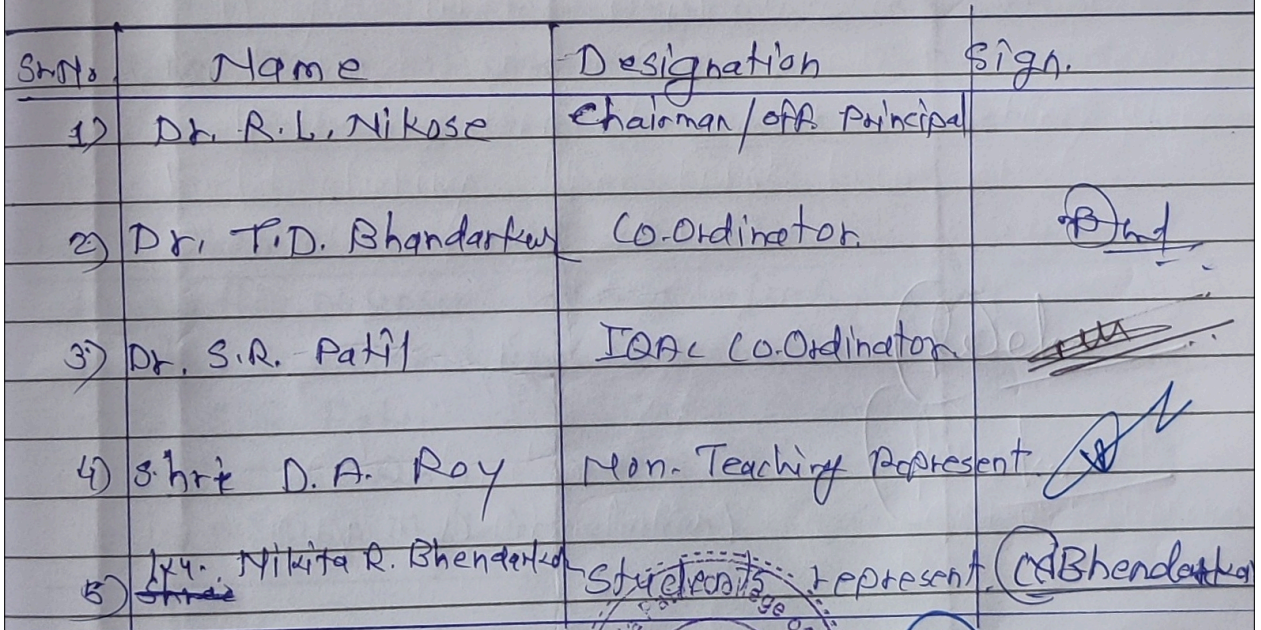 Sr.No. Name Designation Sign.
1) Dr. R.L. Nikose Chairman/Off. Principal
2) Dr. T.D. Bhandarkar Co-Ordinator
3) Dr. S.R. Patil IQAC Co.Ordinator
4) Shri D.A. Roy Non-Teaching Represent.
5) Ku. Nikita R. Bhendarkar Students represent Bhendarkar